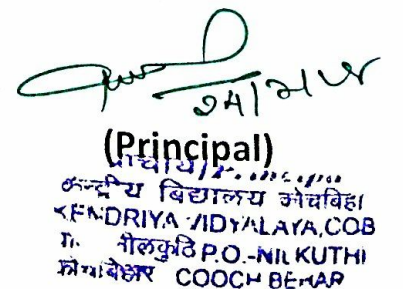 24/
(Principal)
प्राचार्य/
केन्द्रीय विद्यालय कोचबिहा
KENDRIYA VIDYALAYA, COB
नीलकुठि P.O.-NILKUTHI
COOCH BEHAR